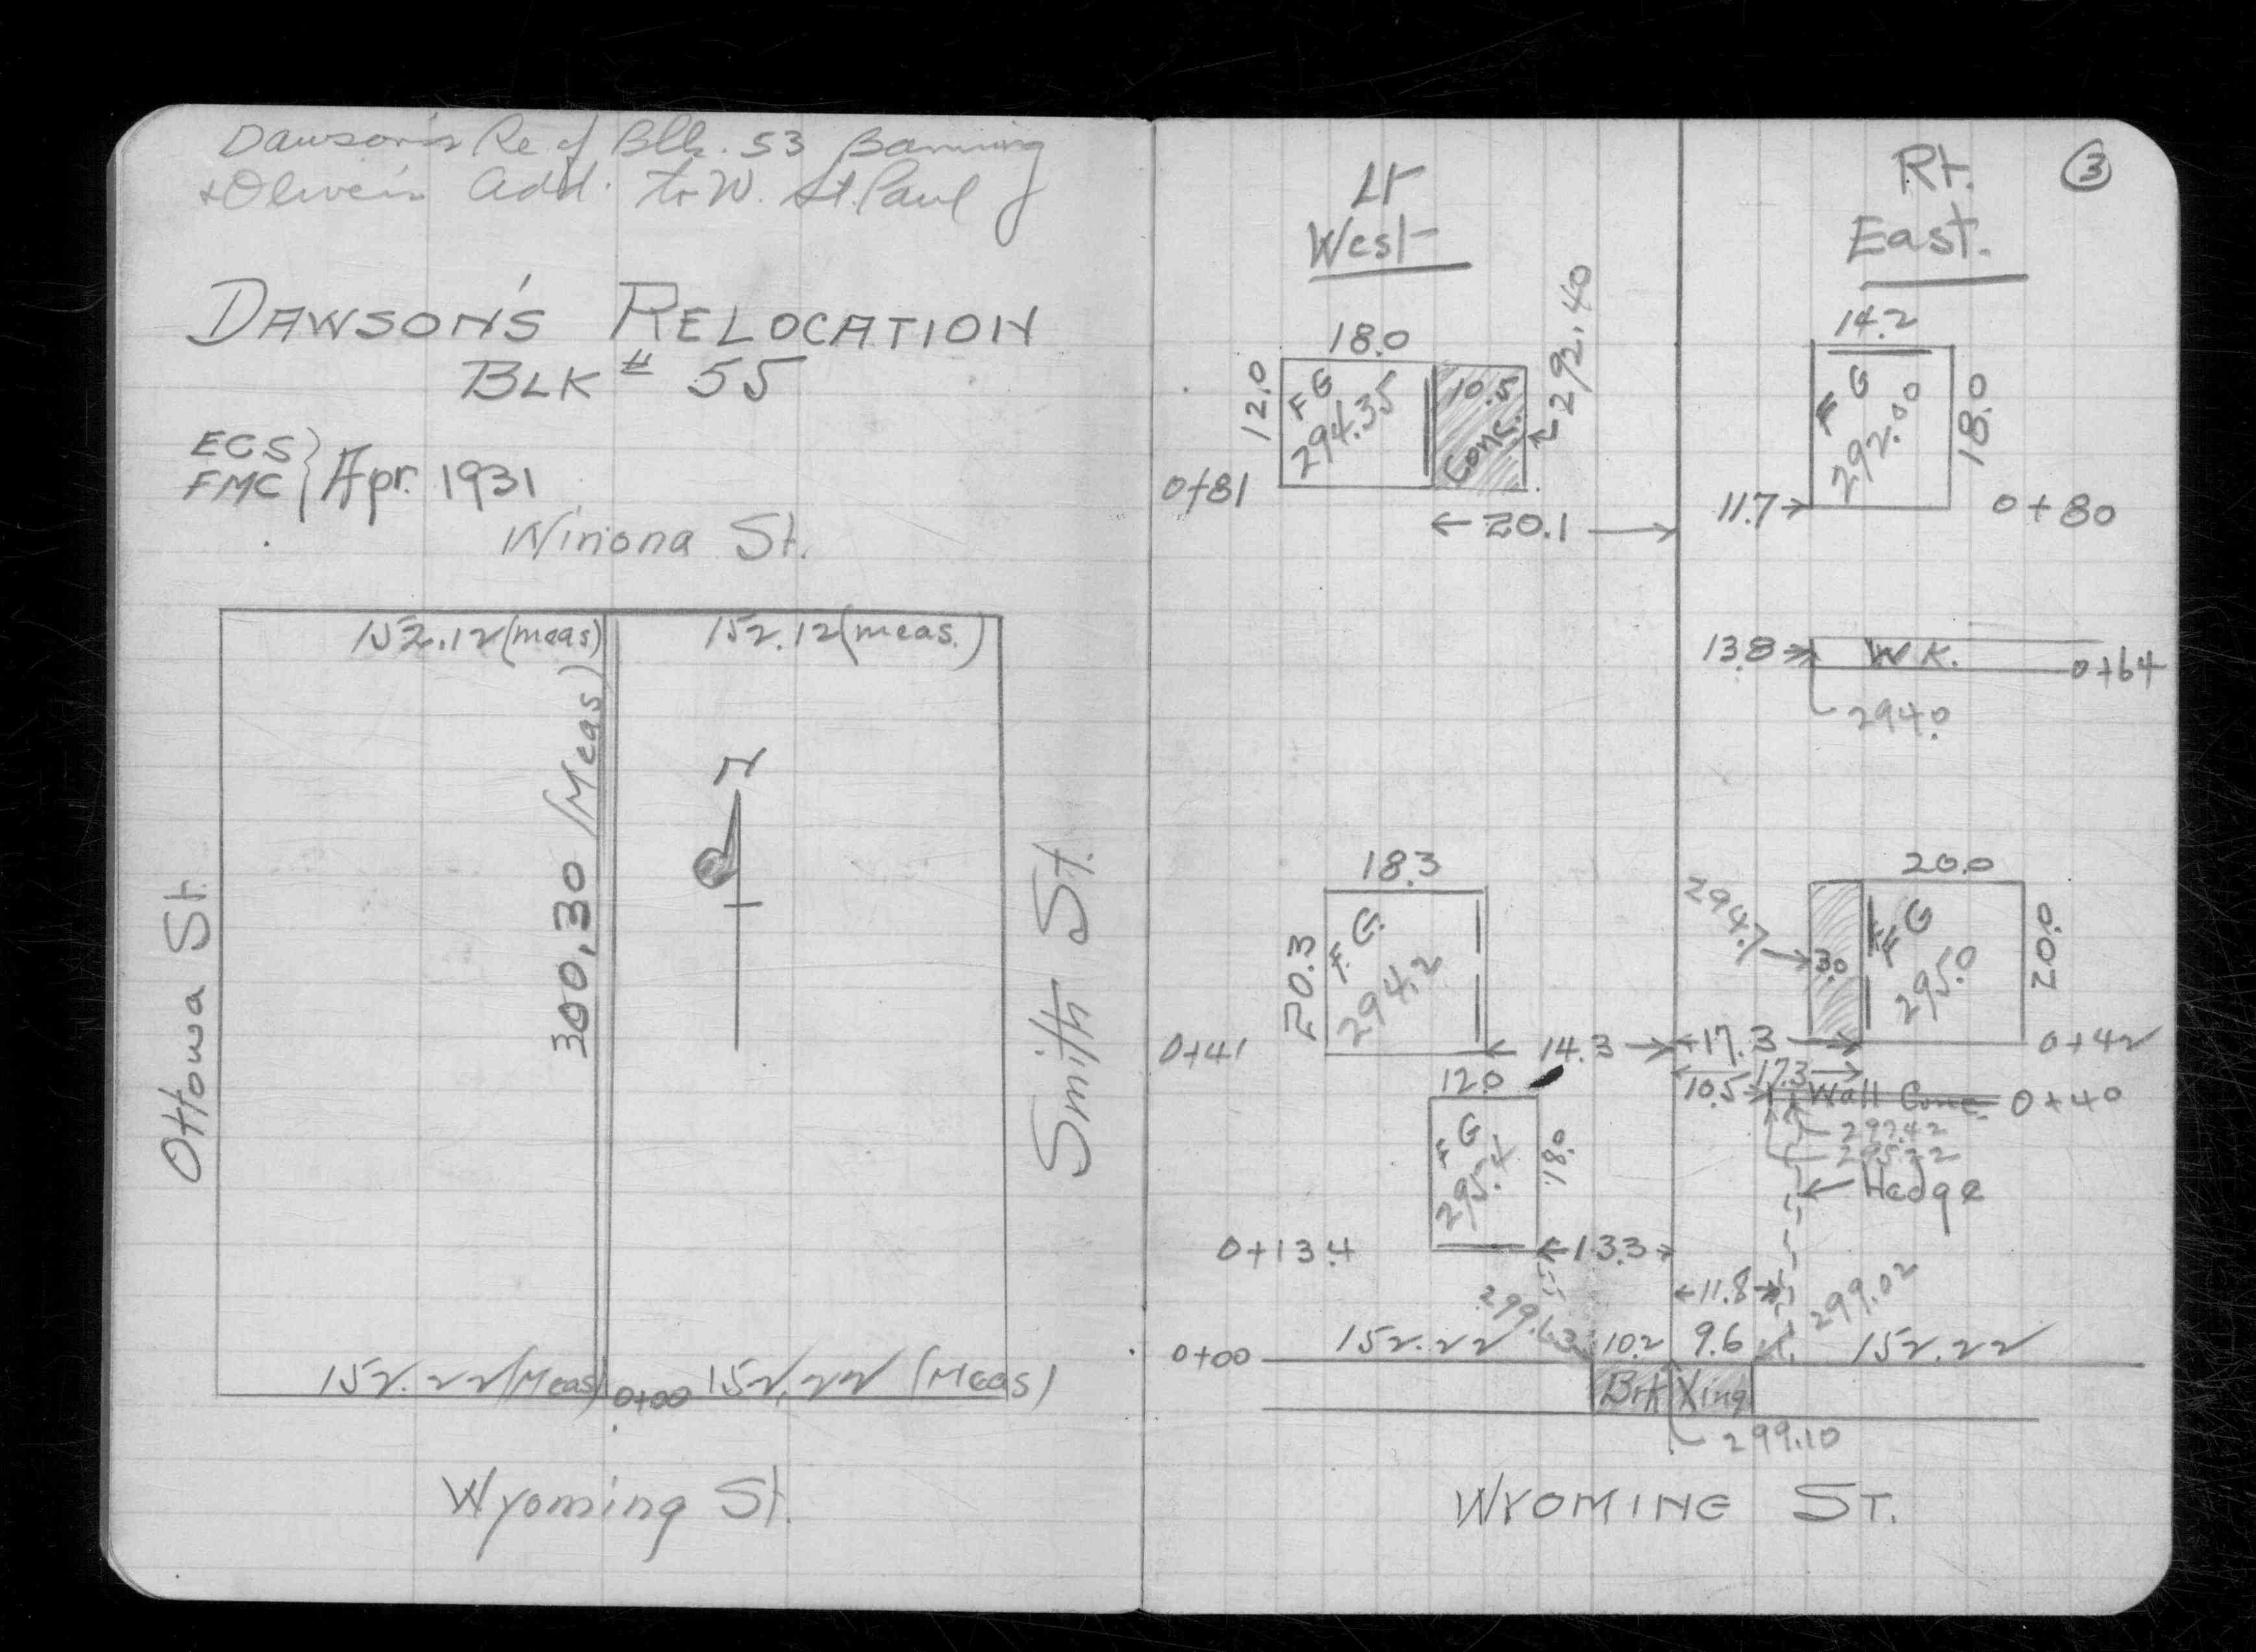 Dawson's Re of Blk. 53 Banning
+ Olivers Add. to W. St. Paul
DAWSON'S RELOCATION
BLK # 55
ECS
FMC } Apr. 1931
Winona St.
152.12 (meas) 152.12 (meas.)
300.30 (Meas)
N
Ottowa St.
Smith St.
152.22 (Meas) 0+00 152.22 (Meas)
Wyoming St.
3
Lt Rt.
West East.
18.0 14.2
12.0 F G 294.35 10.5 Conc. 292.40 F G 292.00 18.0
0+81 11.7 0+80
20.1
13.8 WK. 0+64
294.0
18.3 20.0
20.3 F. G. 294.2 294.7 3.0 F G 295.0 20.0
0+41 14.3 17.3 0+42
12.0 17.3
10.5 Wall Conc. 0+40
F G 295.4 18.0 297.42
295.22
Hedge
0+13.4 13.3
11.8
299.63 299.02
0+00 152.22 10.2 9.6 152.22
Brk Xing
299.10
WYOMING ST.